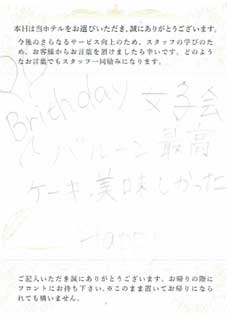 本日は当ホテルをお選びいただき、誠にありがとうございます。
今後のさらなるサービス向上のため、スタッフの学びのため、お客様からお言葉を頂けましたら幸いです。どのようなお言葉でもスタッフ一同励みになります。
Brithday 女子会
バルーン最高
ケーキ美味しかった
Happy
ご記入いただき誠にありがとうございます。お帰りの際に
フロントにお持ち下さい。※このまま置いてお帰りになら
れても構いません。